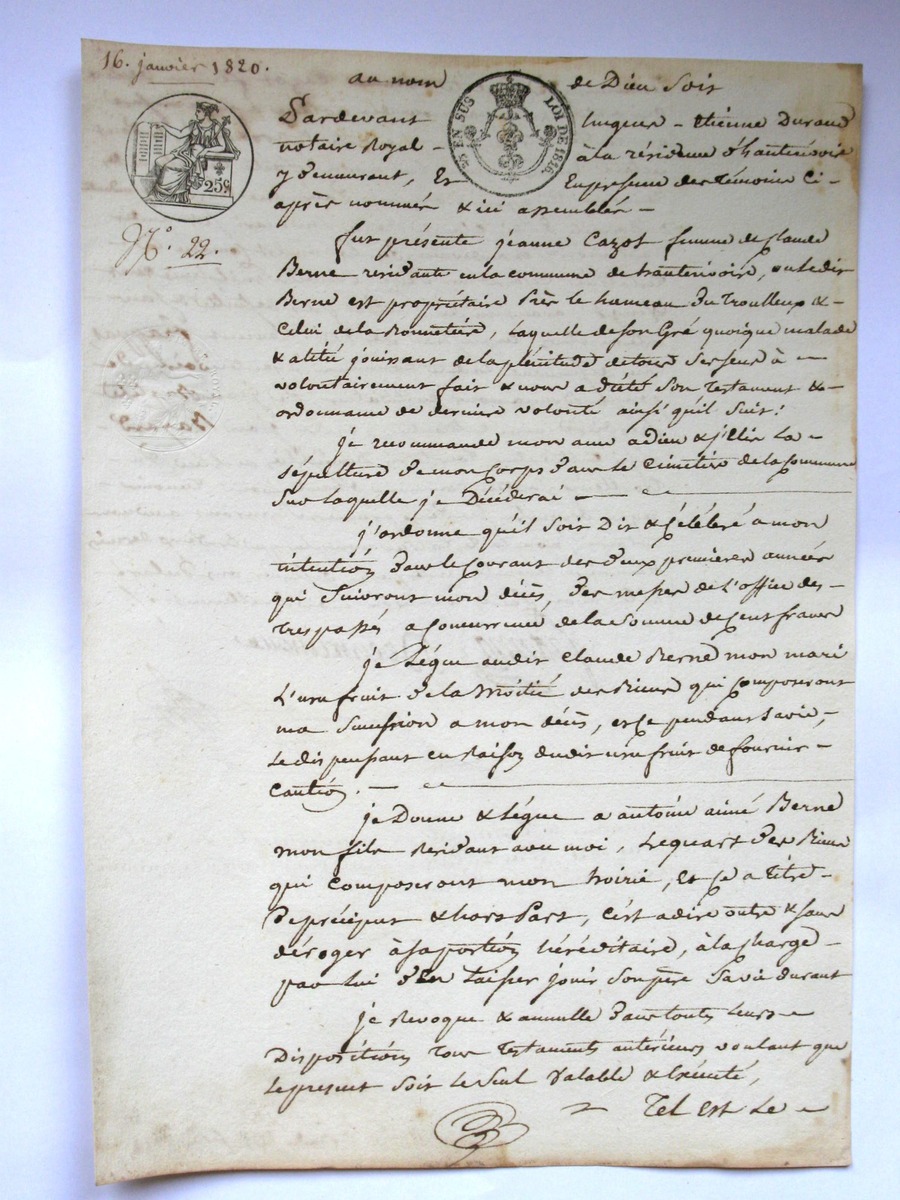 16. janvier 1820.
au nom de Dieu Soit
25 EN SUS LOI DE 1816.
25c.
Pardevant Etienne Durand
notaire Royal - à la résidence d'hauterivoire
y demeurant, Et En presence des témoins Ci-
après nommés & ici assemblés -
N.o 22.
fut présente jeanne Cazot femme de Claude
Berne residante en la commune de hauterivoire, ou ledit
Berne est propriétaire Près le hameau du Trouilleux &
Celui de la Bonnetière, laquelle de son Gré quoique malade
& alité jouissant de la plénitude de tous Ses sens à -
volontairement fait & nous a dicté Son Testament &
ordonnance de dernière volonté ainsi qu'il Suit:
je recommande mon ame a dieu & j'élis la
Sépulture de mon Corps dans le Cimetière de la Commune
Sur laquelle je Décéderai -
j'ordonne qu'il Soit Dit & Célébré a mon
intention dans le Courant des deux premières années
qui Suivront mon décès, des messes de L'office des
Trespassés a Concurrence de la Somme de Cent francs
je Lègue audit Claude Berne mon mari
L'usufruit de la Moitié des Biens qui Composeront
ma Succession a mon décès, et Ce pendant Sa vie,
Le dispensant en Raison dudit usufruit de fournir
Caution. -
je Donne & Légue a antoine aimé Berne
mon fils Residant avec moi, Le quart des Biens
qui Composeront mon hoirie, Et Ce a Titre
de préciput & hors Part, C'est a dire outre & Sans
déroger à Sa portion héréditaire, à la Charge
par Lui d'En Laisser jouir Son père Sa vie durant
je Revoque & annulle dans toutes Leurs
Dispositions Tous Testaments antérieurs voulant que
Le présent Soit Le Seul Valable & Exécuté,
Tel Est Le